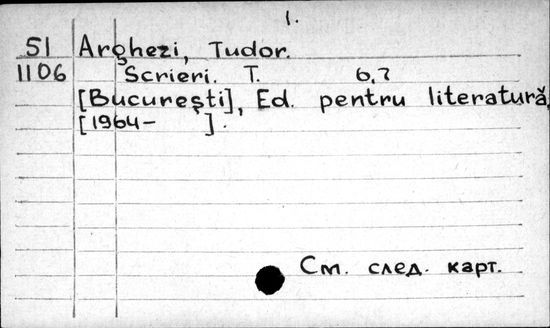 1.
51 Arghezi, Tudor.
1106 Scrieri. T. 6,7
[București], Ed. pentru literatură,
[1964- ].
См. след. карт.